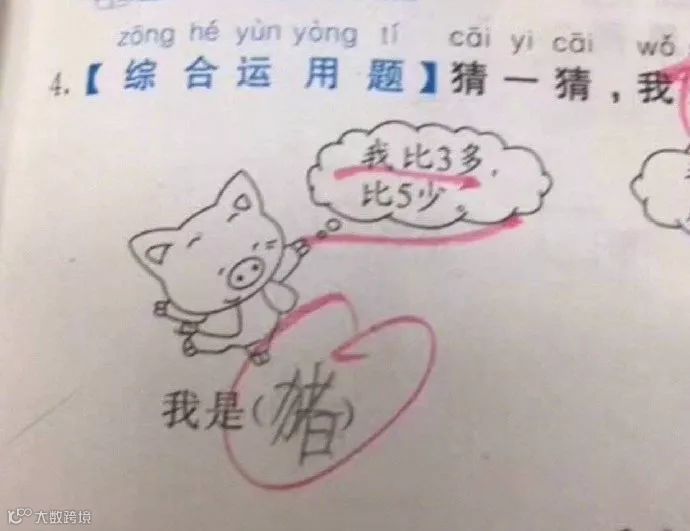 zōng hé yùn yòng tí cāi yi cāi wǒ
4.【综合运用题】猜一猜，我
我比3多，
比5少。
我是(猪)
大数跨境